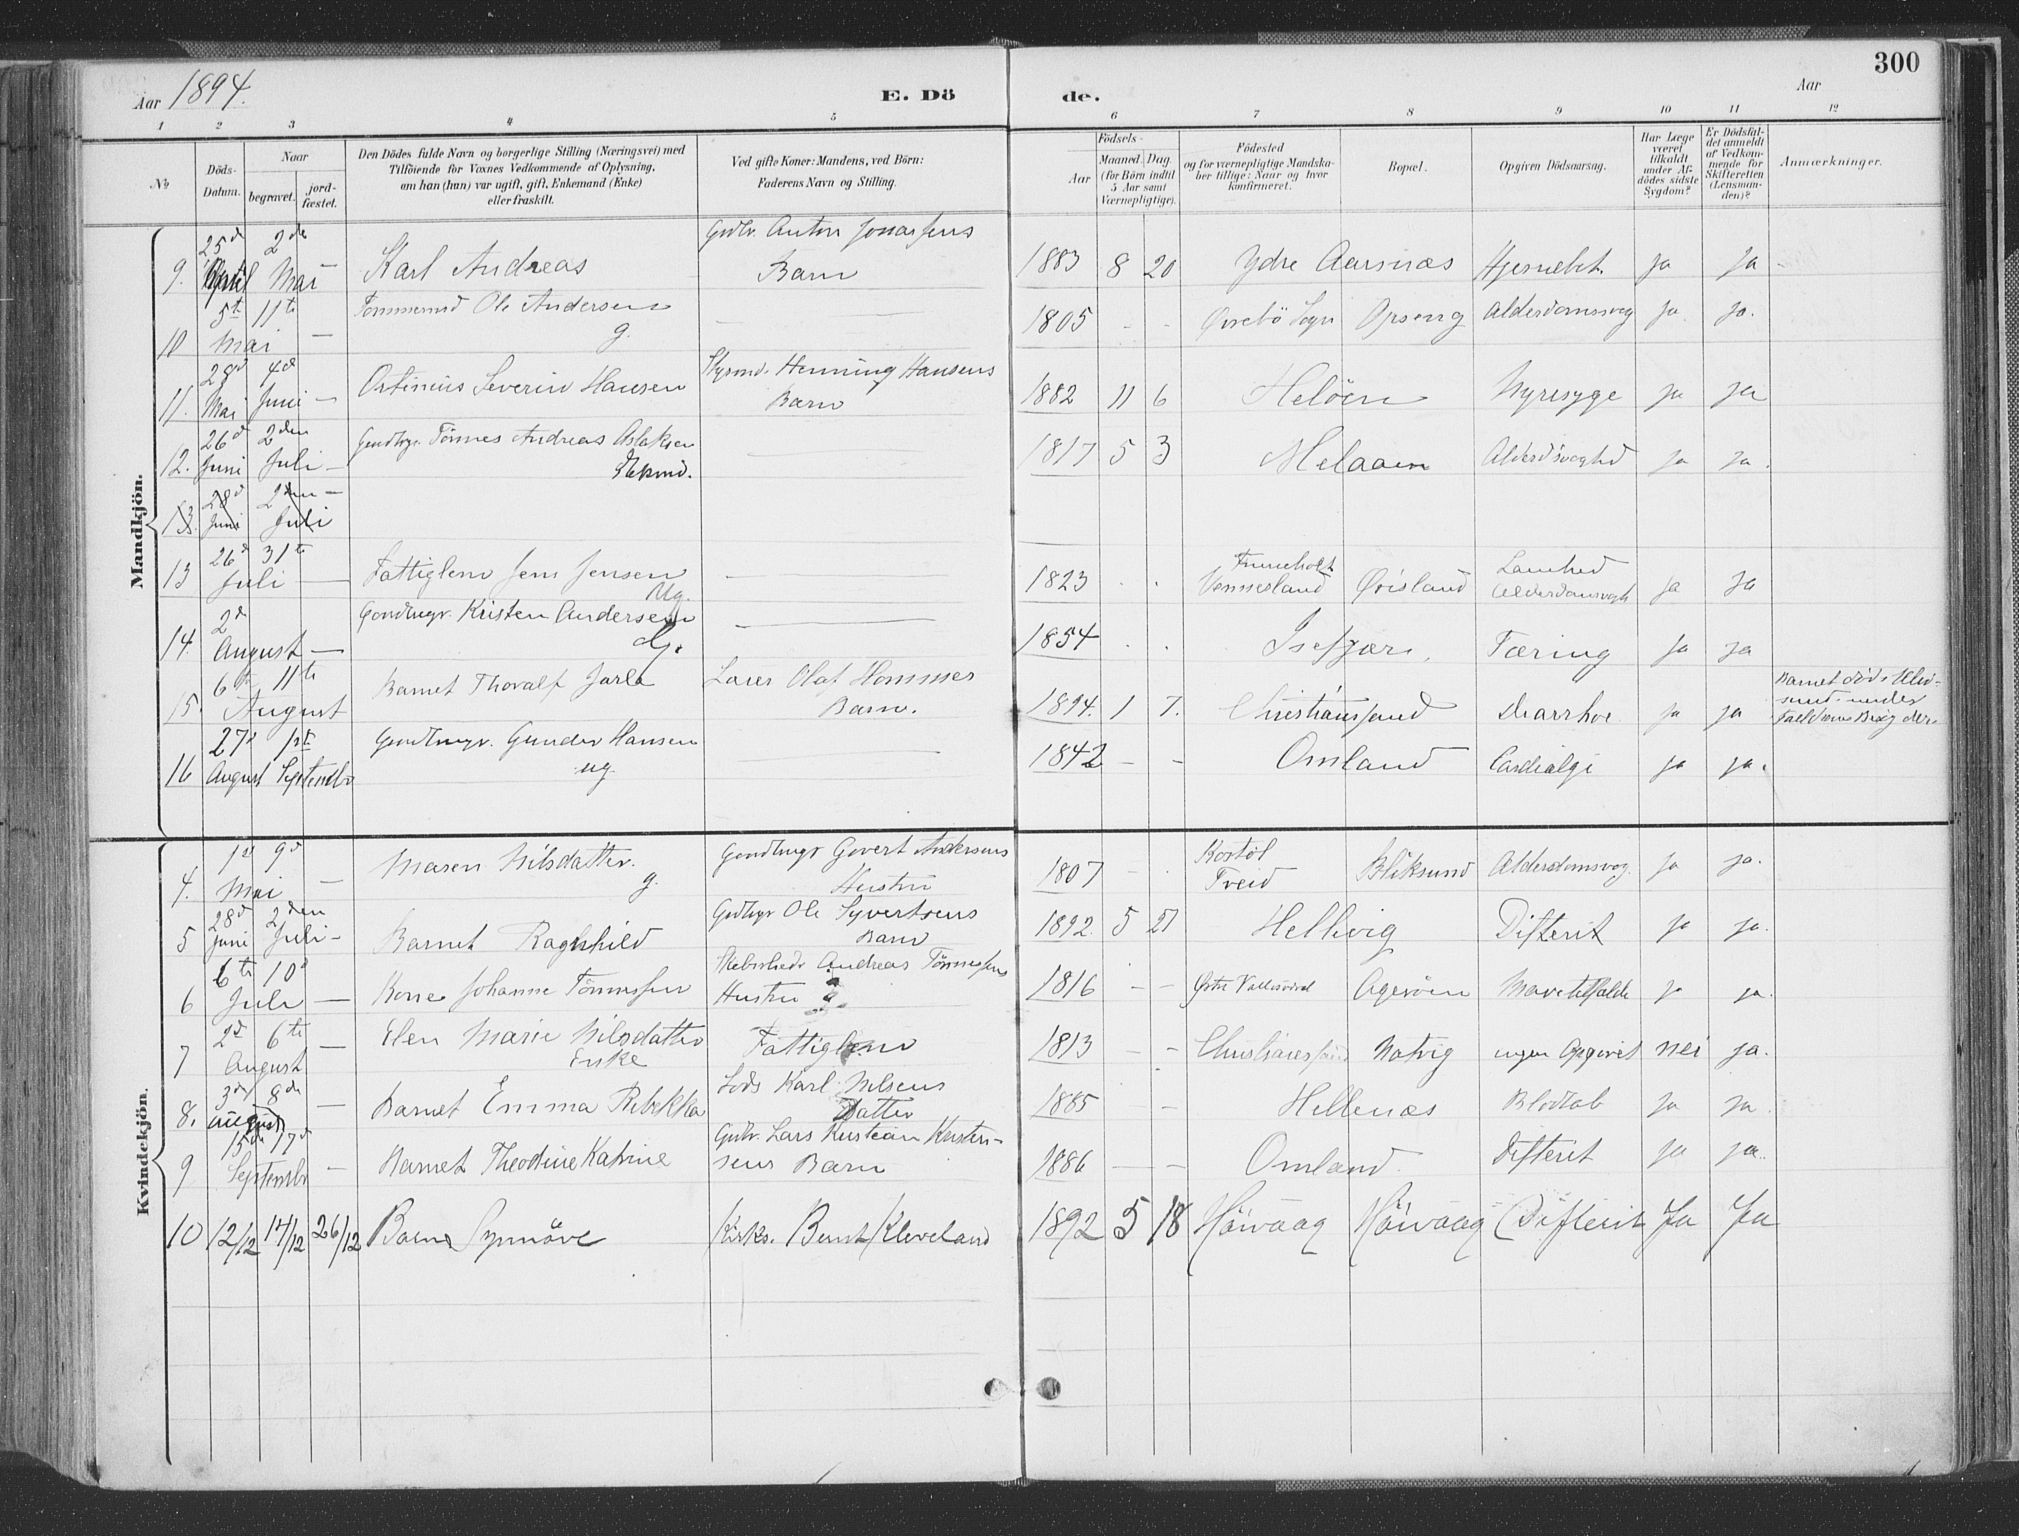 Aar 1894.
E. Dö
de.
Aar
300
1 2 3 4 5 6 7 8 9 10 11 12
No
Döds-
Datum.
Naar
begravet.
jord-
fæstet.
Den Dödes fulde Navn og borgerlige Stilling (Næringsvei) med
Tilföiende for Voxnes Vedkommende af Oplysning,
om han (hun) var ugift, gift, Enkemand (Enke)
eller fraskilt.
Ved gifte Koner: Mandens, ved Börn:
Faderens Navn og Stilling.
Födsels-
Aar
Maaned. Dag.
(for Börn indtil
5 Aar samt
Værnepligtige).
Födested
og for værnepligtige Mandska-
ber tillige: Naar og hvor
konfirmeret.
Bopæl.
Opgiven Dödsaarsag.
Har Læge
været
tilkaldt
under Af-
dödes sidste
Sygdom?
Er Dödsfal-
det anmeldt
af Vedkom-
mende for
Skifteretten
(Lensman-
den)?
Anmærkninger.
Mandkjön.
9. 25d April 2den Mai Karl Andreas Gmdbr. Anton Jonassens Barn 1883 8 20 Ydre Aarsnæs Hjernebet. ja ja
10 5te Mai 11te — Tømmermd Ole Andersen g. — 1805 - - Øvrebö Sogn Opseng Alderdomssvag ja ja.
11. 28d Mai 4d Juni — Ostinius Severin Hansen Styrmd. Henning Hansens Barn 1882 11 6 Helöen Nyresyge ja ja
12. 26d Juni 2den Juli — Gmdbgr. Tönnes Andreas Aslaksen Ekmd. 1817 5 3 Melaaen ja ja.
13. 28d Juni 2den — Juli
13 26d Juli 31te — Fattiglem Jens Jensen Ug. — 1823 . . Vennesland Øvisland Lamhed ja ja
14. 2d August — Kristen Andersen G. — 1854 . . Isefjær. Tæring ja ja
15. 6te 11te August Barnet Thoralf Jarle Olaf Hommes Barn. 1894. 1 7. Christianssand Diarrhoe ja ja Barnet död
16 27d August 1st Septembr Gunder Hansen ug. — 1842 - - Omland Cardialgi ja ja.
Kvindekjön.
4. 1st Mai 9d — Maren Nilsdatter. g. Govert Andersens Hustru 1807 - . Treid Bliksund Alderdomssvag. ja ja.
5 28d Juni 2den Juli — Barnet Ragnhild Ole Syvertsens Barn 1892. 5 21 Hellvig Difterit ja ja.
6 6te Juli 10d — Johanne Tönnessen Andreas Tönnessens Hustru 1816 - - Østre Vallesværd Agerøen ja ja.
7 2d August 6te — Elen Marie Nilsdatter Enke Fattiglem 1813 - - Christianssand Natvig ingen Opgivet nei ja.
8. 3die August 8de — Barnet Emma Rebekka Lods Karl Nilsens Datter 1885 - - Hellenæs Blodtab ja ja.
9 15de Septembr 17d — Barnet Theodine Katrine Lars Kristian Kristen-
sens Barn 1886 - - Omland. Difterit ja ja.
10 12/12 17/12 26/12 Barne Synnöve Kirks. Bernt Kleveland 1892 5 18 Höivaag Höivaag Difterit Ja Ja